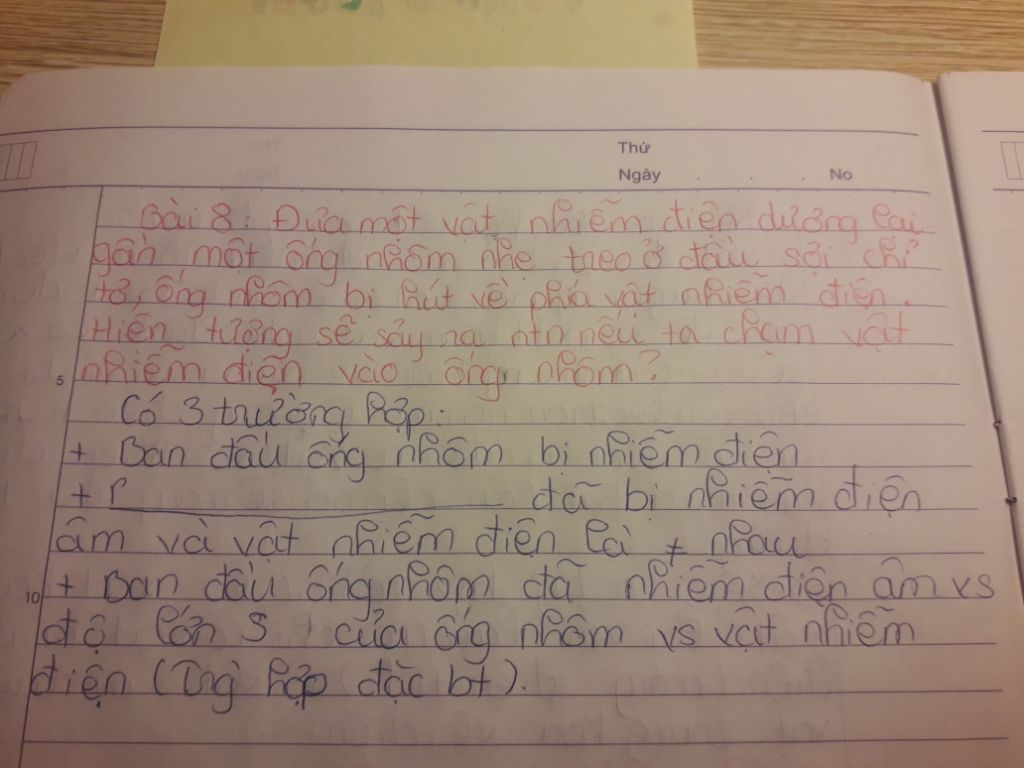 Thứ
Ngày . . . No
Bài 8: Đưa một vật nhiễm điện dương lại
gần một ống nhôm nhẹ treo ở đầu sợi chỉ
tơ, ống nhôm bị hút về phía vật nhiễm điện.
Hiện tượng sẽ sảy ra ntn nếu ta chạm vật
5
nhiễm điện vào ống nhôm?
Có 3 trường hợp:
+ Ban đầu ống nhôm bị nhiễm điện
+ đã bị nhiễm điện
âm và vật nhiễm điện là ≠ nhau
10
+ Ban đầu ống nhôm đã nhiễm điện âm vs
độ lớn của ống nhôm vs vật nhiễm
điện (Trg hợp đặc bt).